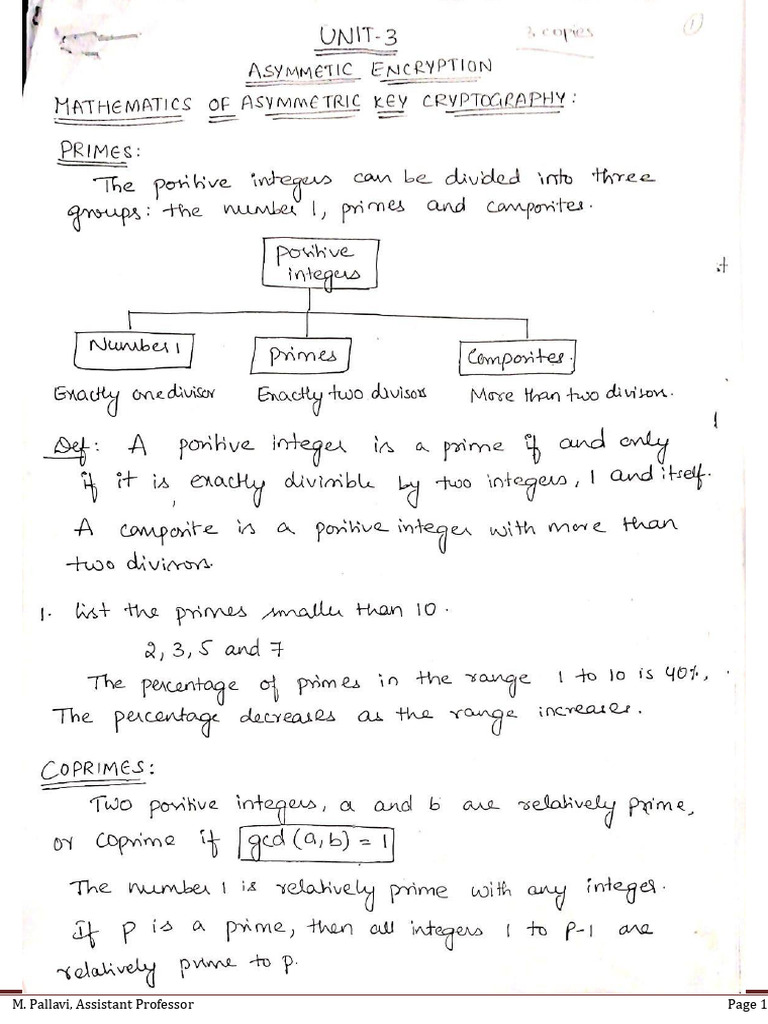 UNIT-3
3 copies
1
ASYMMETIC ENCRYPTION
MATHEMATICS OF ASYMMETRIC KEY CRYPTOGRAPHY:
PRIMES:
The positive integers can be divided into three
groups: the number 1, primes and composites.
positive
integers
Number 1
Primes
Composites.
Exactly one divisor
Exactly two divisors
More than two divisors.
Def: A positive integer is a prime if and only
if it is exactly divisible by two integers, 1 and itself.
A composite is a positive integer with more than
two divisors.
1. List the primes smaller than 10.
2, 3, 5 and 7
The percentage of primes in the range 1 to 10 is 40%,
The percentage decreases as the range increases.
COPRIMES:
Two positive integers, a and b are relatively prime,
or coprime if gcd (a, b) = 1
The number 1 is relatively prime with any integer.
If P is a prime, then all integers 1 to P-1 are
relatively prime to P.
M. Pallavi, Assistant Professor
Page 1